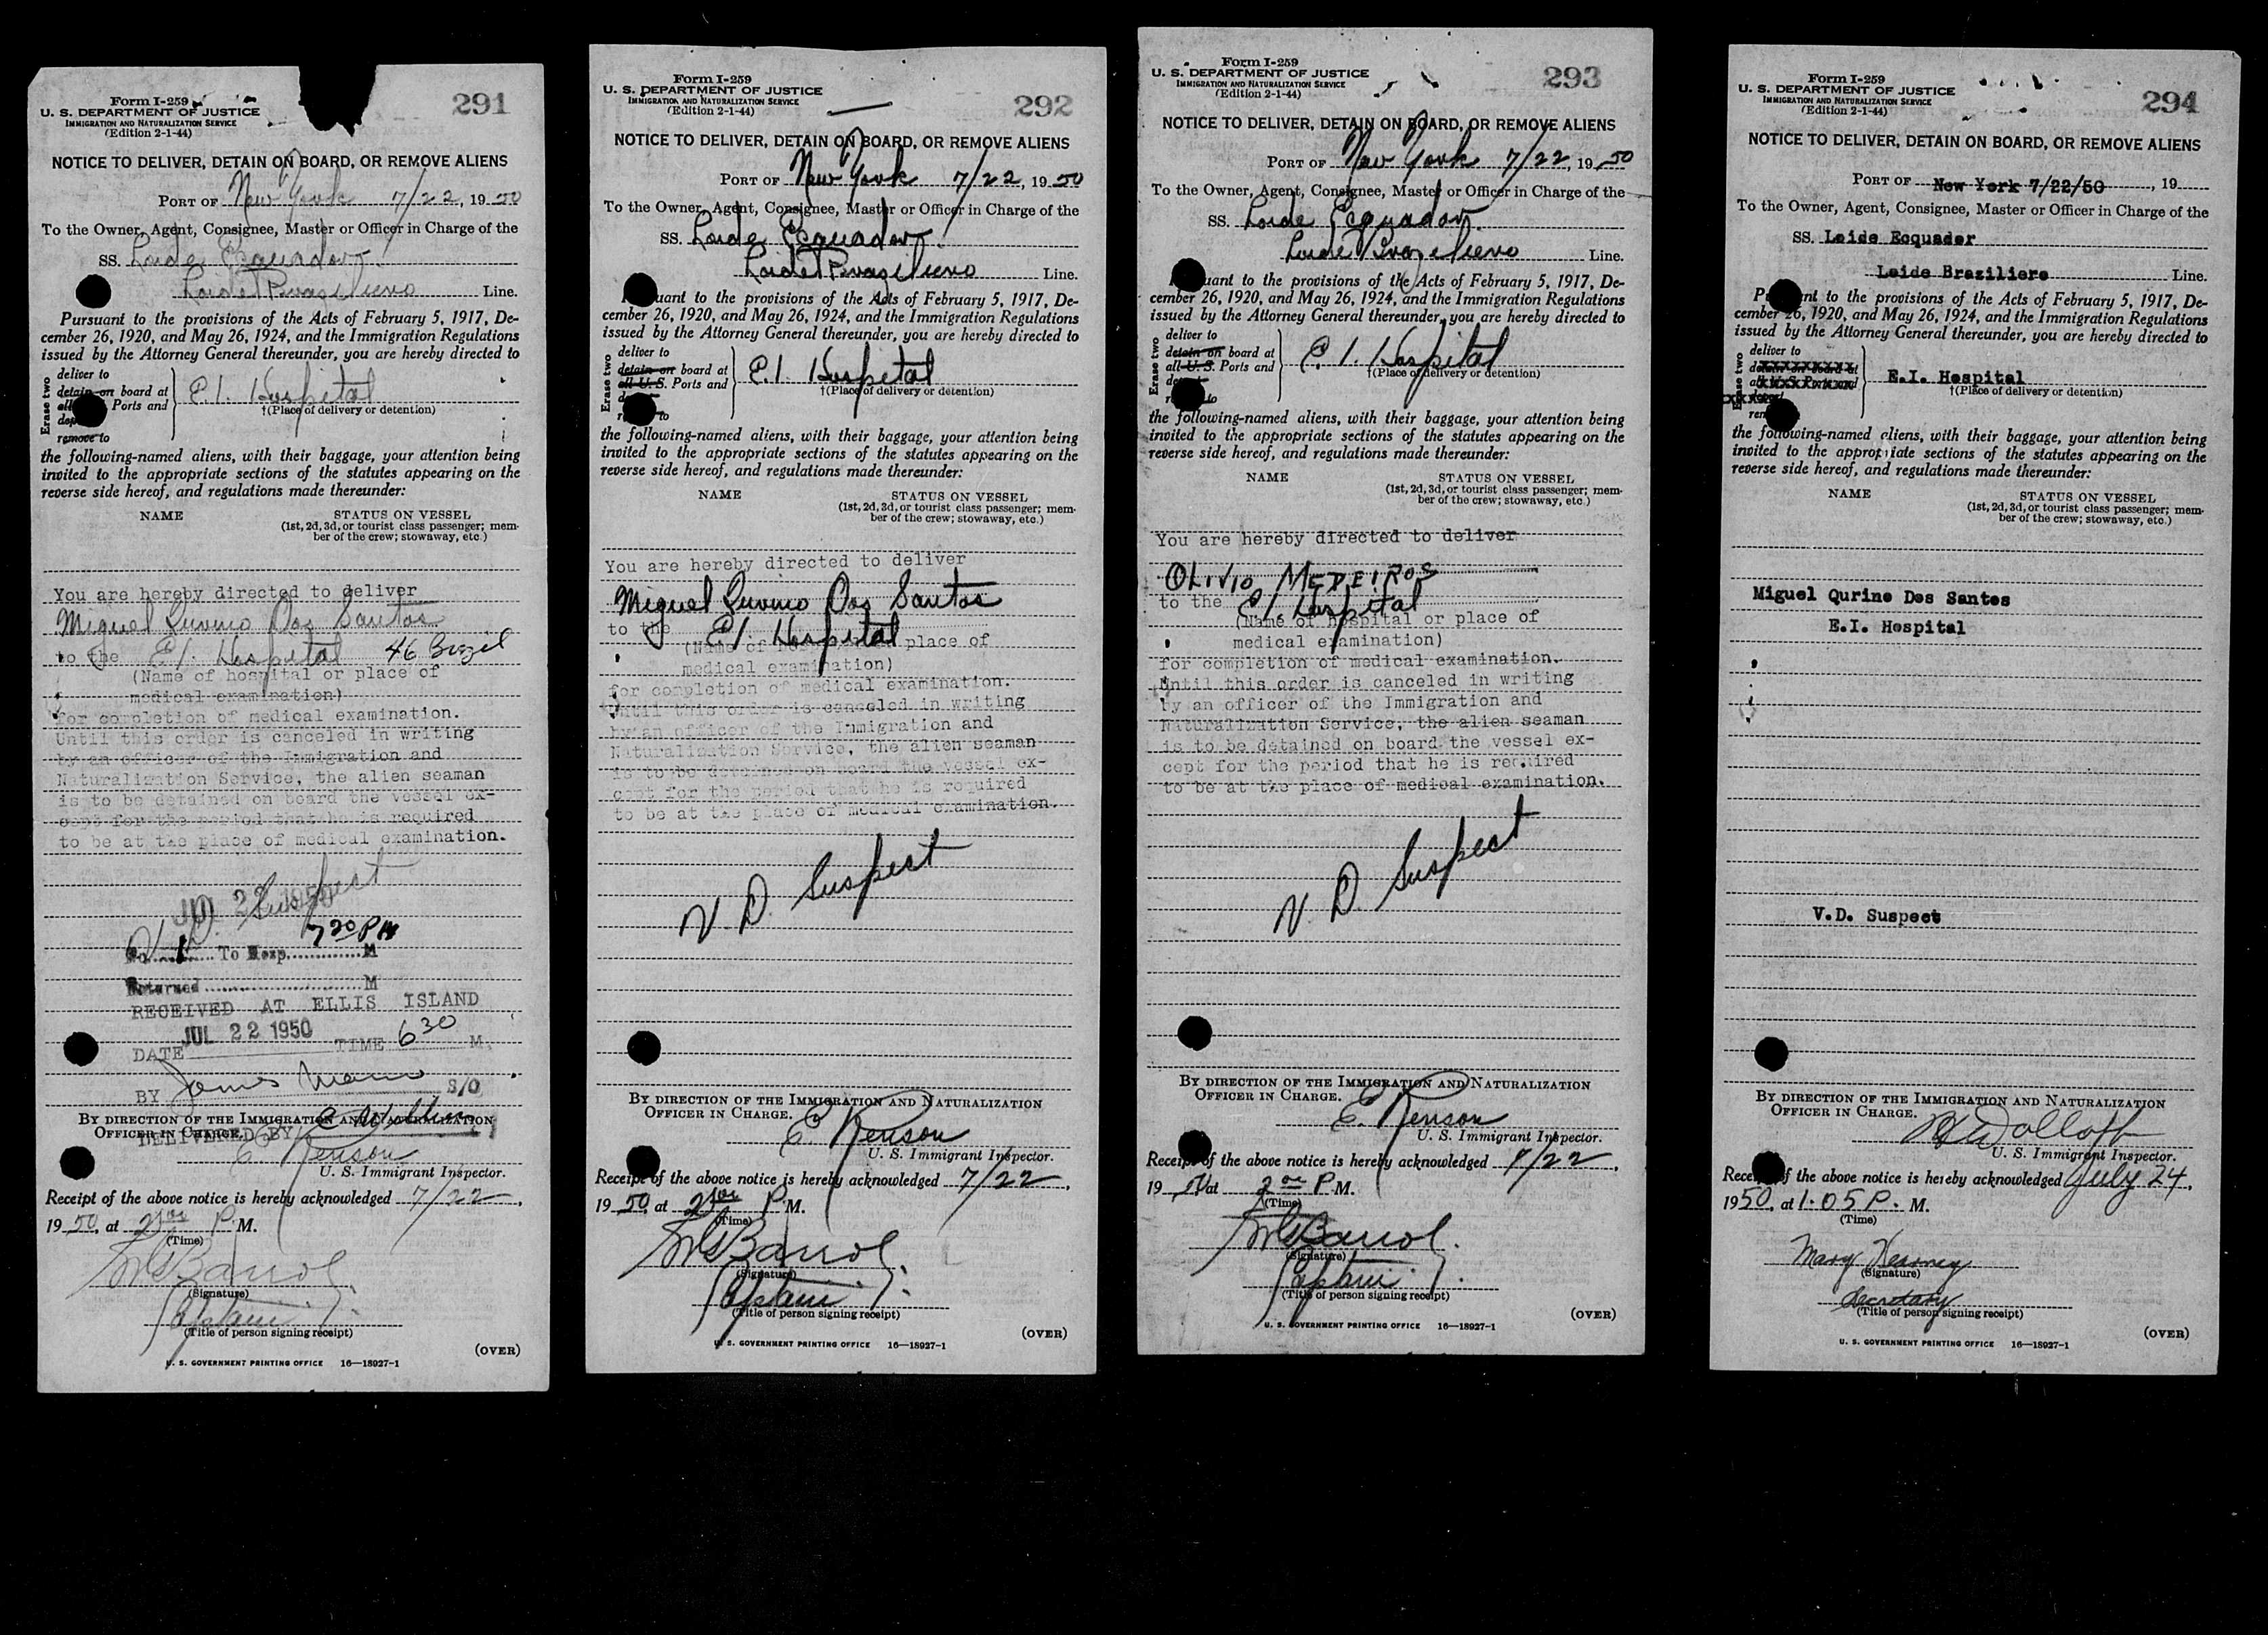 291
Form I-259
U. S. DEPARTMENT OF JUSTICE
IMMIGRATION AND NATURALIZATION SERVICE
(Edition 2-1-44)
NOTICE TO DELIVER, DETAIN ON BOARD, OR REMOVE ALIENS
PORT OF New York 7/22, 1950
To the Owner, Agent, Consignee, Master or Officer in Charge of the
SS. Loide Equador
Loide Brasileiro Line.
Pursuant to the provisions of the Acts of February 5, 1917, De-
cember 26, 1920, and May 26, 1924, and the Immigration Regulations
issued by the Attorney General thereunder, you are hereby directed to
Erase two
deliver to
detain on board at
all Ports and
remove to
E.I. Hospital
†(Place of delivery or detention)
the following-named aliens, with their baggage, your attention being
invited to the appropriate sections of the statutes appearing on the
reverse side hereof, and regulations made thereunder:
NAME STATUS ON VESSEL
(1st, 2d, 3d, or tourist class passenger; mem-
ber of the crew; stowaway, etc.)
You are hereby directed to deliver
Miguel Dos Santos
to the E.I. Hospital 46 Brazil
(Name of hospital or place of
medical examination)
for completion of medical examination.
Until this order is canceled in writing
by an officer of the Immigration and
Naturalization Service, the alien seaman
is to be detained on board the vessel ex-
cept for the period that he is required
to be at the place of medical examination.
V.D. Suspect
7 20 PM
To Hosp. M
Returned M
RECEIVED AT ELLIS ISLAND
JUL 22 1950
DATE TIME 6 30 M.
BY James S/O
BY DIRECTION OF THE IMMIGRATION AND NATURALIZATION
OFFICER IN CHARGE.
DELIVERED BY
E. Renson
U. S. Immigrant Inspector.
Receipt of the above notice is hereby acknowledged 7/22,
1950, at 2 00 P. M.
(Time)
(Signature)
Captain
(Title of person signing receipt)
(OVER)
U. S. GOVERNMENT PRINTING OFFICE 16—18927-1
292
Form I-259
U. S. DEPARTMENT OF JUSTICE
IMMIGRATION AND NATURALIZATION SERVICE
(Edition 2-1-44)
NOTICE TO DELIVER, DETAIN ON BOARD, OR REMOVE ALIENS
PORT OF New York 7/22, 1950
To the Owner, Agent, Consignee, Master or Officer in Charge of the
SS. Loide Equador
Loide Brasileiro Line.
uant to the provisions of the Acts of February 5, 1917, De-
cember 26, 1920, and May 26, 1924, and the Immigration Regulations
issued by the Attorney General thereunder, you are hereby directed to
Erase two
deliver to
detain on board at
all U.S. Ports and
to
E.I. Hospital
†(Place of delivery or detention)
the following-named aliens, with their baggage, your attention being
invited to the appropriate sections of the statutes appearing on the
reverse side hereof, and regulations made thereunder:
NAME STATUS ON VESSEL
(1st, 2d, 3d, or tourist class passenger; mem-
ber of the crew; stowaway, etc.)
You are hereby directed to deliver
Miguel Dos Santos
to the E.I. Hospital
(Name of hospital or place of
medical examination)
for completion of medical examination.
Until this order is canceled in writing
by an officer of the Immigration and
Naturalization Service, the alien seaman
is to be detained on board the vessel ex-
cept for the period that he is required
to be at the place of medical examination.
V. D. Suspect
BY DIRECTION OF THE IMMIGRATION AND NATURALIZATION
OFFICER IN CHARGE.
E. Renson
U. S. Immigrant Inspector.
Receipt of the above notice is hereby acknowledged 7/22,
1950, at 2 00 P. M.
(Time)
(Signature)
Captain
(Title of person signing receipt)
(OVER)
U. S. GOVERNMENT PRINTING OFFICE 16—18927-1
293
Form I-259
U. S. DEPARTMENT OF JUSTICE
IMMIGRATION AND NATURALIZATION SERVICE
(Edition 2-1-44)
NOTICE TO DELIVER, DETAIN ON BOARD, OR REMOVE ALIENS
PORT OF New York 7/22, 1950
To the Owner, Agent, Consignee, Master or Officer in Charge of the
SS. Loide Equador
Loide Brasileiro Line.
uant to the provisions of the Acts of February 5, 1917, De-
cember 26, 1920, and May 26, 1924, and the Immigration Regulations
issued by the Attorney General thereunder, you are hereby directed to
Erase two
deliver to
detain on board at
all U.S. Ports and
to
E.I. Hospital
†(Place of delivery or detention)
the following-named aliens, with their baggage, your attention being
invited to the appropriate sections of the statutes appearing on the
reverse side hereof, and regulations made thereunder:
NAME STATUS ON VESSEL
(1st, 2d, 3d, or tourist class passenger; mem-
ber of the crew; stowaway, etc.)
You are hereby directed to deliver
OLIVIO MEDEIROS
to the E.I. Hospital
(Name of hospital or place of
medical examination)
for completion of medical examination.
Until this order is canceled in writing
by an officer of the Immigration and
Naturalization Service, the alien seaman
is to be detained on board the vessel ex-
cept for the period that he is required
to be at the place of medical examination.
V. D. Suspect
BY DIRECTION OF THE IMMIGRATION AND NATURALIZATION
OFFICER IN CHARGE.
E. Renson
U. S. Immigrant Inspector.
Receipt of the above notice is hereby acknowledged 7/22,
1950 at 2 00 P. M.
(Time)
(Signature)
Captain
(Title of person signing receipt)
(OVER)
U. S. GOVERNMENT PRINTING OFFICE 16—18927-1
294
Form I-259
U. S. DEPARTMENT OF JUSTICE
IMMIGRATION AND NATURALIZATION SERVICE
(Edition 2-1-44)
NOTICE TO DELIVER, DETAIN ON BOARD, OR REMOVE ALIENS
PORT OF New York 7/22/50, 19
To the Owner, Agent, Consignee, Master or Officer in Charge of the
SS. Loide Ecquador
Loide Braziliero Line.
nt to the provisions of the Acts of February 5, 1917, De-
cember 26, 1920, and May 26, 1924, and the Immigration Regulations
issued by the Attorney General thereunder, you are hereby directed to
Erase two
deliver to
E.I. Hospital
†(Place of delivery or detention)
the following-named aliens, with their baggage, your attention being
invited to the appropriate sections of the statutes appearing on the
reverse side hereof, and regulations made thereunder:
NAME STATUS ON VESSEL
(1st, 2d, 3d, or tourist class passenger; mem-
ber of the crew; stowaway, etc.)
Miguel Qurino Dos Santos
E.I. Hospital
V.D. Suspect
BY DIRECTION OF THE IMMIGRATION AND NATURALIZATION
OFFICER IN CHARGE.
U. S. Immigrant Inspector.
Receipt of the above notice is hereby acknowledged July 24,
1950, at 1.05 P. M.
(Time)
Mary Kearney
(Signature)
Secretary
(Title of person signing receipt)
(OVER)
U. S. GOVERNMENT PRINTING OFFICE 16—18927-1